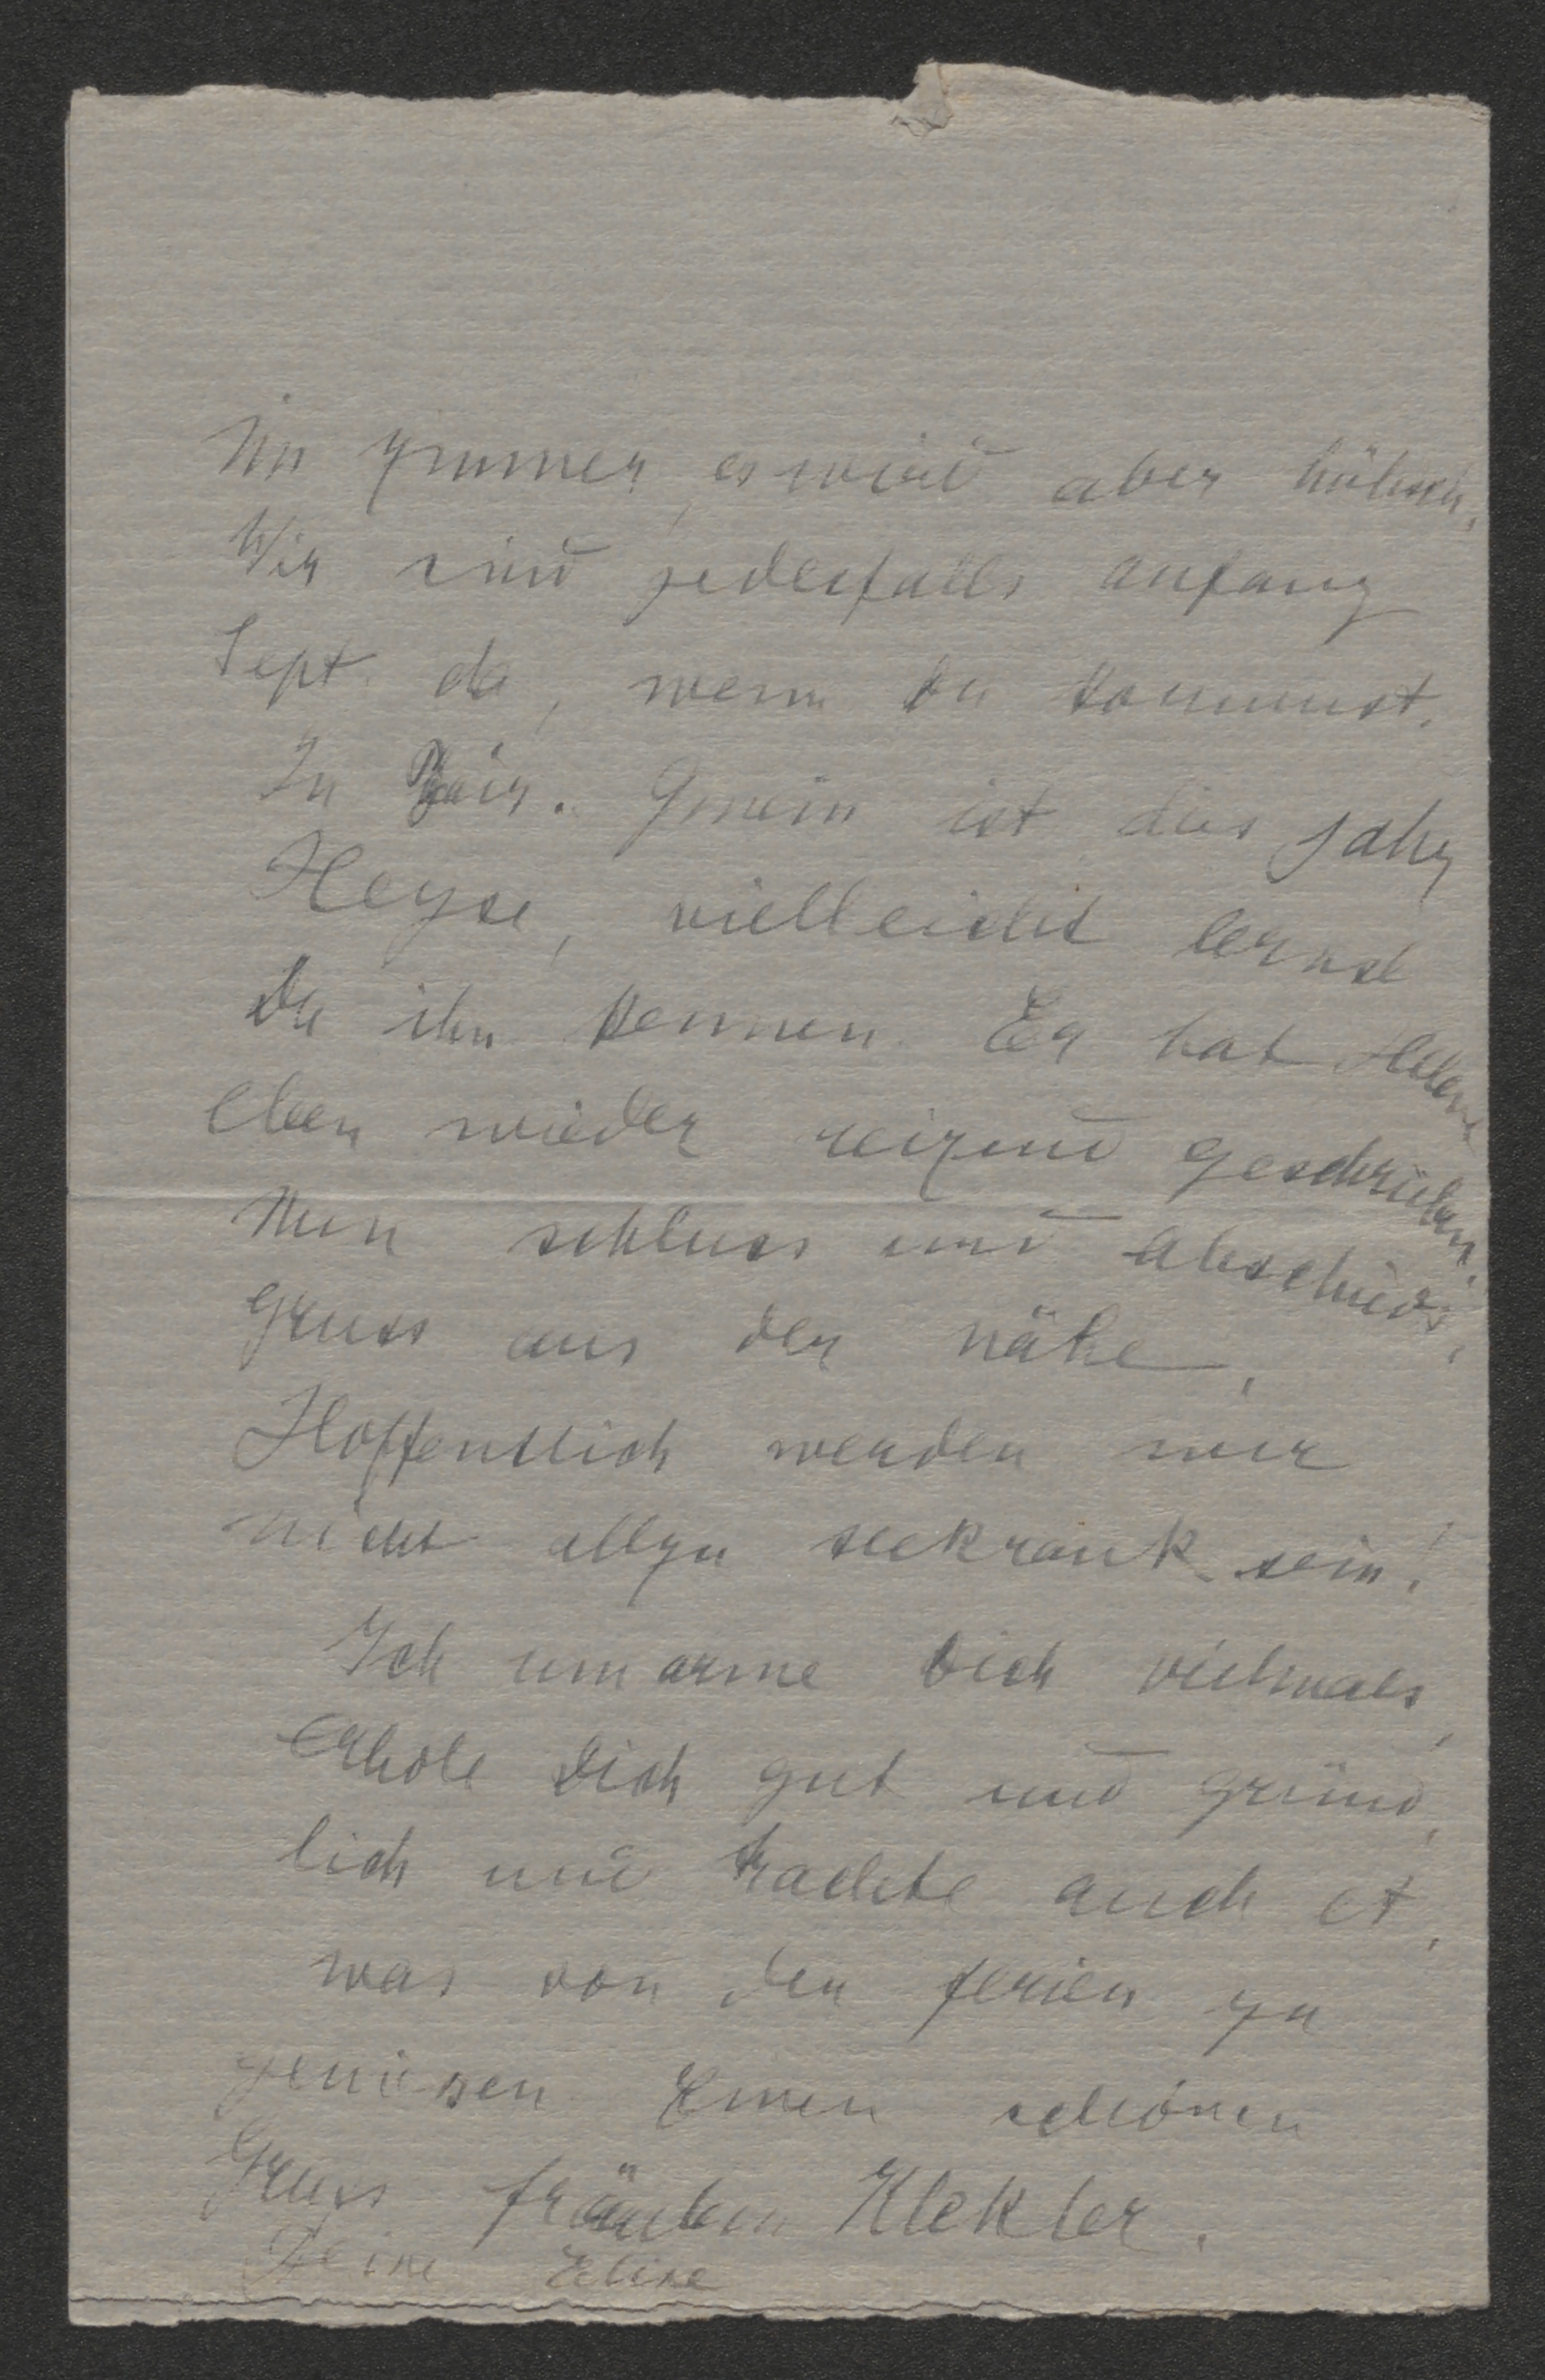 im zimmer, es wird aber hübsch,
Wir sind jedesfalls anfang
Sept. da, wenn Du kommst.
In Bair. Gmein ist dies Jahr
Heyse, vielleicht lernst
Du ihn kennen. Er hat Helene
eben wieder reizend geschrieben.
Nun schluss und Abschieds,
gruss aus der nähe,
Hoffentlich werden wir
nicht allzu seekrank sein!
Ich umarme Dich vielmals,
erhole Dich gut und gründ,
lich und trachte auch et,
was von den ferien zu
geniesen. Einen schönen
Gruss fräulein Klekler.
Deine Elise